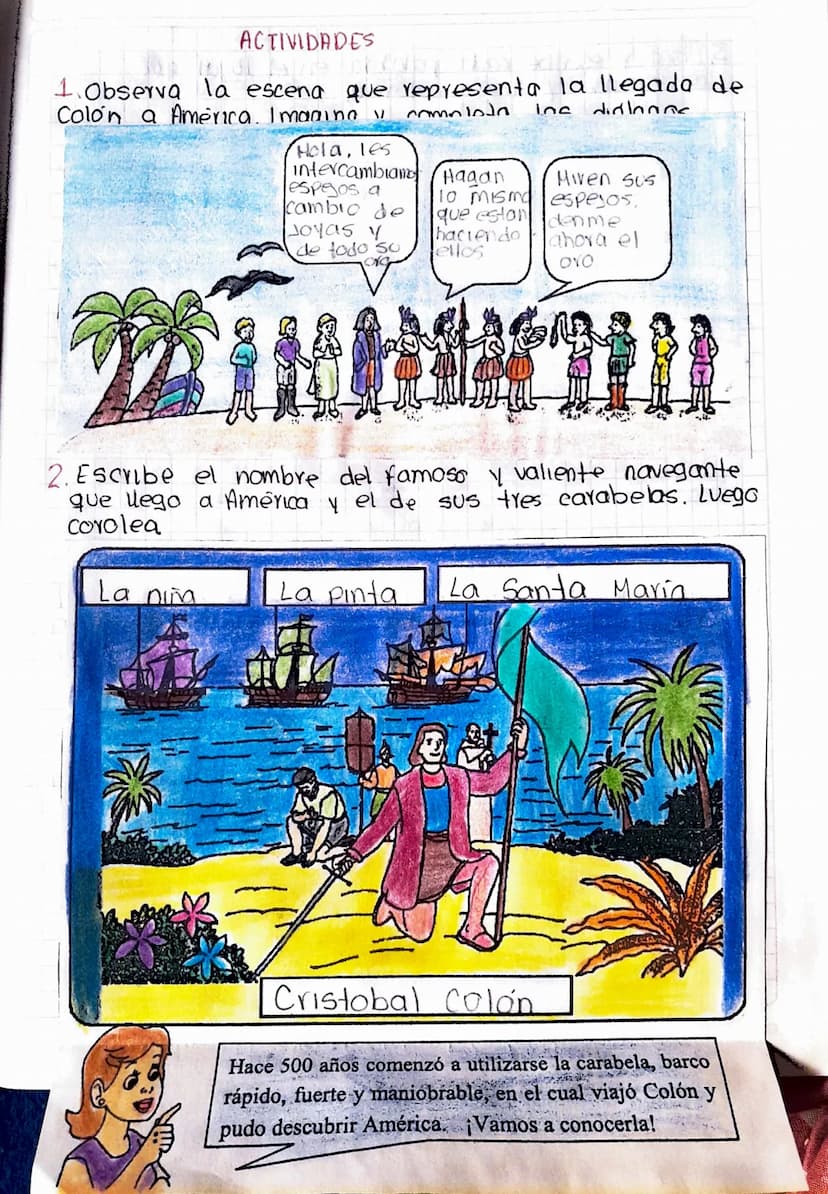 ACTIVIDADES
1. Observa la escena que representa la llegada de
Colón a América. Imagina y completa los diálogos
Hola, les
intercambiamos
espejos a
cambio de
Joyas y
de todo su
oro
Hagan
lo mismo
que estan
haciendo
ellos
Miren sus
espejos.
denme
ahora el
oro
2. Escribe el nombre del famoso y valiente navegante
que llego a América y el de sus tres carabelas. Luego
corolea
La niña
La pinta
La Santa María
Cristobal Colón
Hace 500 años comenzó a utilizarse la carabela, barco
rápido, fuerte y maniobrable, en el cual viajó Colón y
pudo descubrir América. ¡Vamos a conocerla!